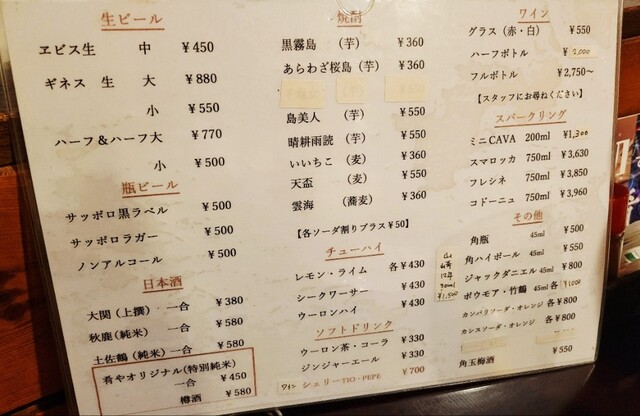 生ビール
ヱビス生 中 ¥450
ギネス 生 大 ¥880
小 ¥550
ハーフ&ハーフ大 ¥770
小 ¥500
瓶ビール
サッポロ黒ラベル ¥500
サッポロラガー ¥500
ノンアルコール ¥500
日本酒
大関(上撰) 一合 ¥380
秋鹿(純米) 一合 ¥580
土佐鶴(純米) 一合 ¥580
肴やオリジナル(特別純米)
一合 ¥450
樽酒 ¥580
焼酎
黒霧島 (芋) ¥360
あらわざ桜島 (芋) ¥360
島美人 (芋) ¥550
晴耕雨読 (芋) ¥550
いいちこ (麦) ¥360
天盃 (麦) ¥550
雲海 (蕎麦) ¥360
【各ソーダ割りプラス¥50】
チューハイ
レモン・ライム 各¥430
シークワーサー ¥430
ウーロンハイ ¥430
ソフトドリンク
ウーロン茶・コーラ ¥330
ジンジャーエール ¥330
ワイン シェリーTIO・PEPE ¥700
ワイン
グラス(赤・白) ¥550
ハーフボトル ¥2,000
フルボトル ¥2,750~
【スタッフにお尋ねください】
スパークリング
ミニCAVA 200ml ¥1,300
スマロッカ 750ml ¥3,630
フレシネ 750ml ¥3,850
コドーニュ 750ml ¥3,960
その他
角瓶 45ml ¥500
角ハイボール 45ml ¥550
ジャックダニエル 45ml ¥800
ボウモア・竹鶴 45ml 各¥1000
カンパリソーダ・オレンジ 各¥800
カシスソーダ・オレンジ 各¥800
角玉梅酒 ¥550
12年
30ml
¥1,500